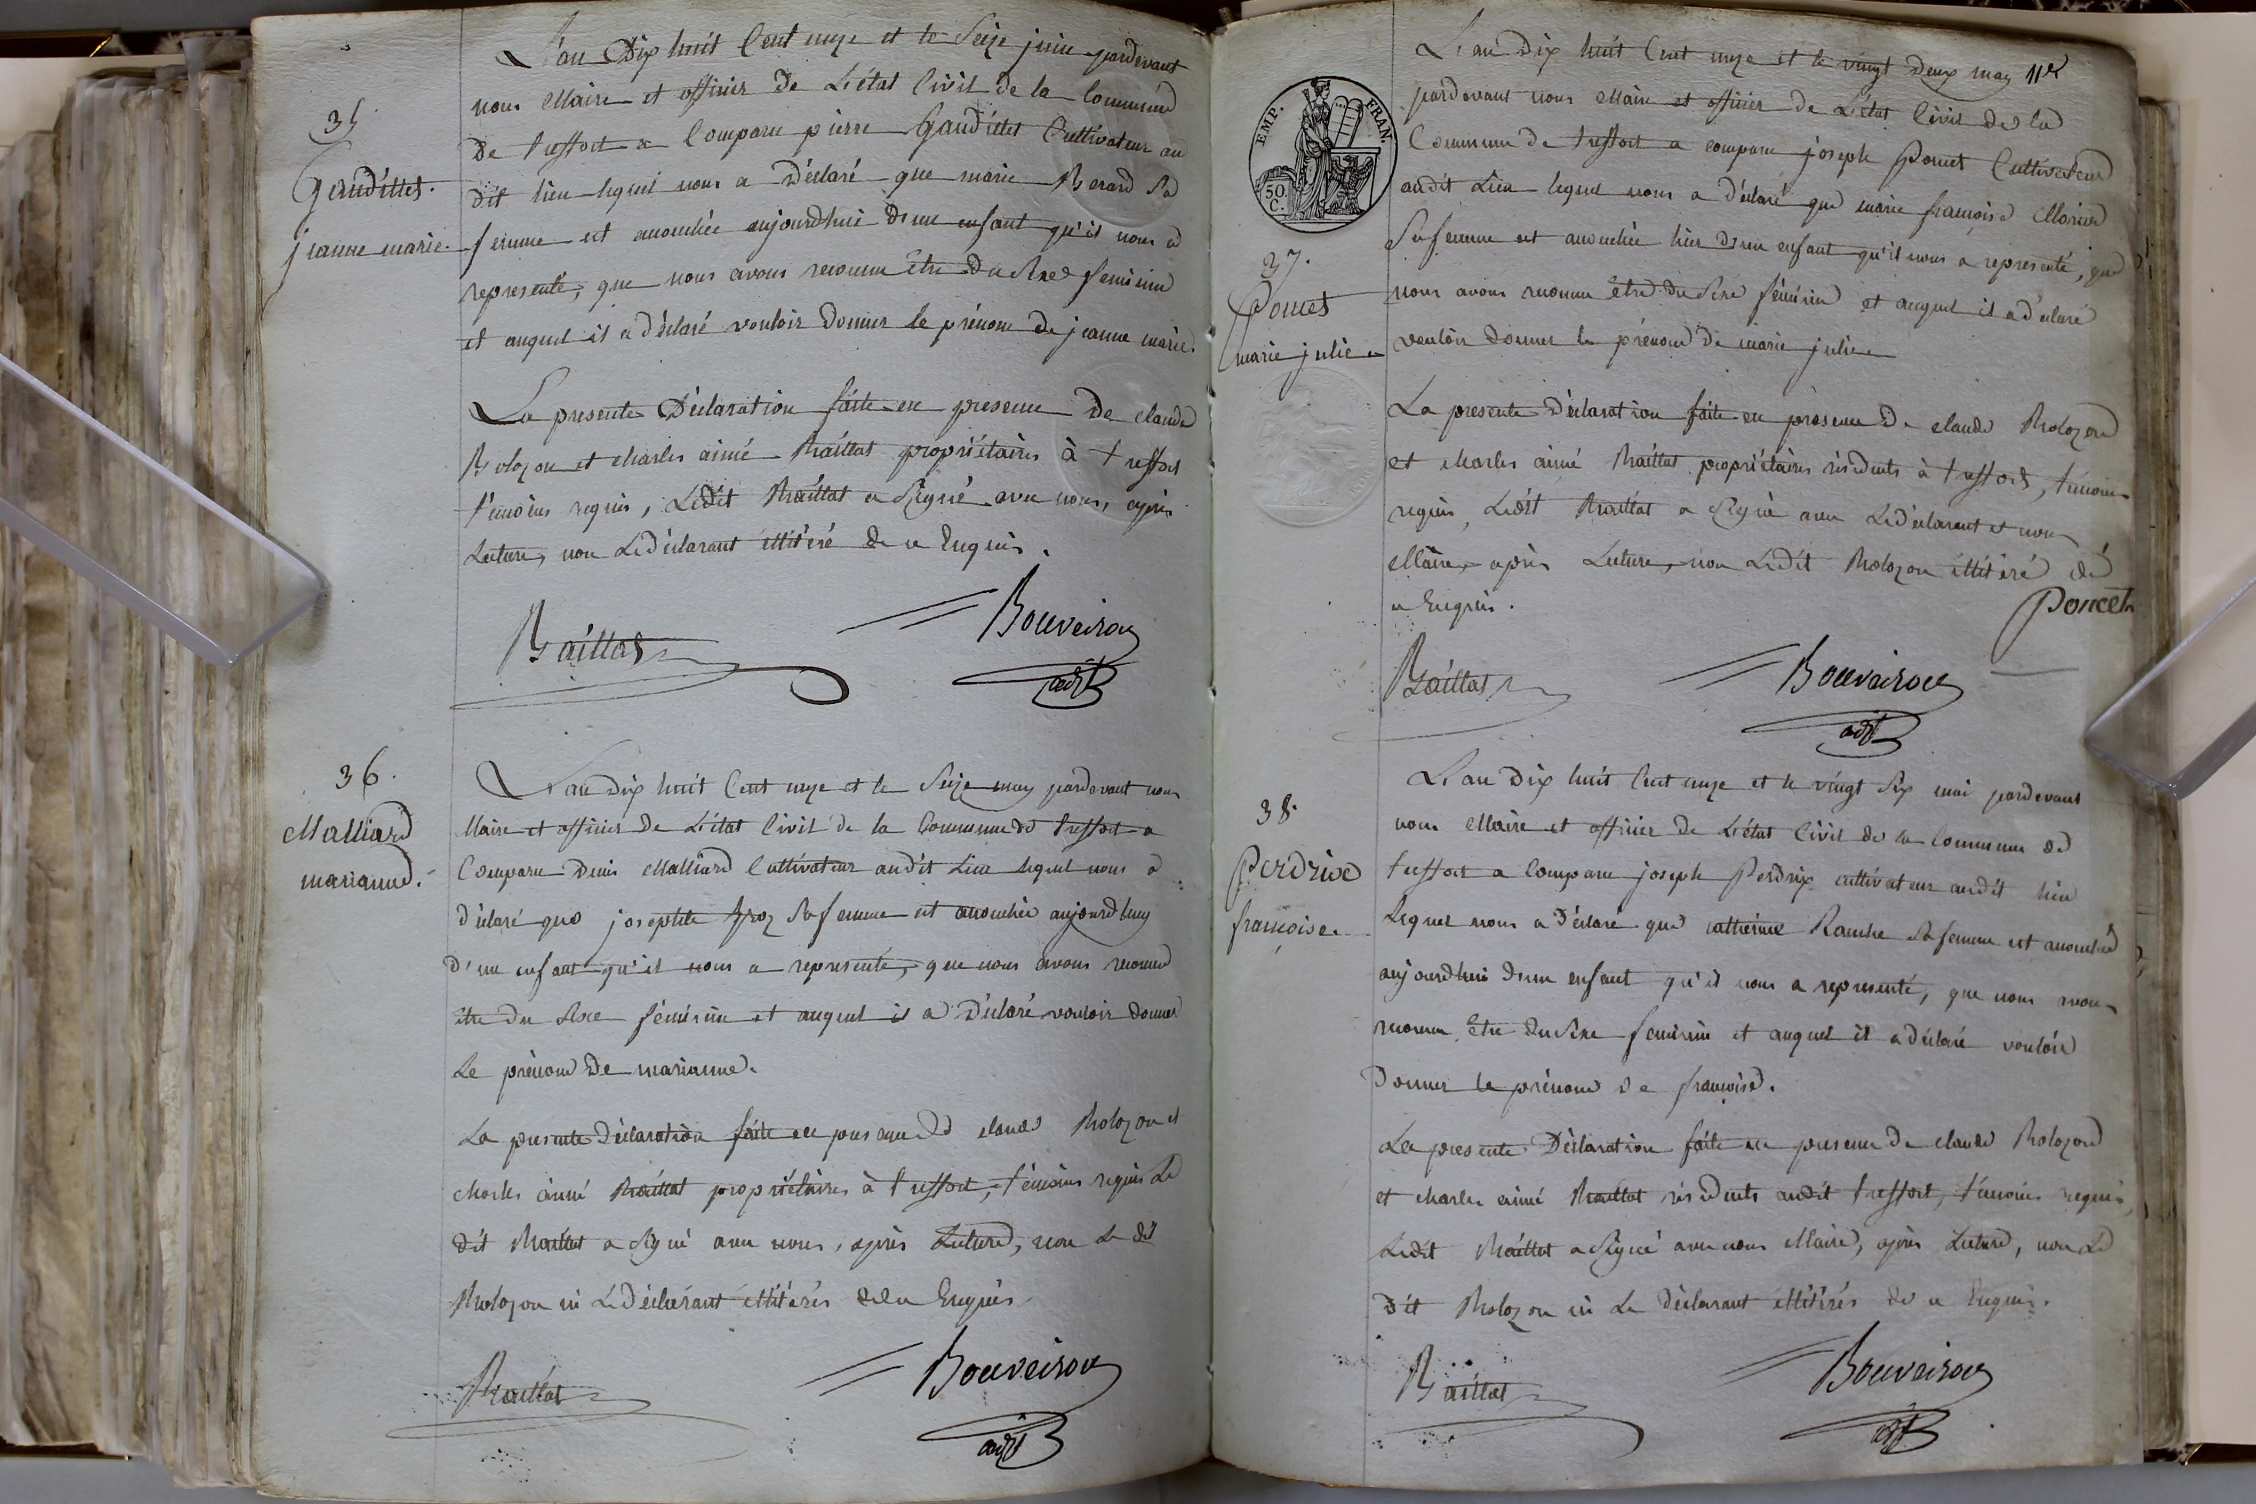 35
Gaudillet.
jeanne marie.
L'an Dix huit Cent onze et le Seize juin pardevant
nous Maire et officier de L'état Civil de la Commune
De treffort a Comparu pierre Gaudillet Cultivateur au
dit lieu lequel nous a Déclaré que marie Berard Sa
femme est accouchée aujourdhui d'un enfant qu'il nous a
representé, que nous avons reconnu être du Sexe feminin
et auquel il a déclaré vouloir donner le prénom de jeanne marie.
La presente Déclaration faite en presence De claude
Bolozon et charles aimé Raillat propriétaires à treffort
témoins requis, Ledit Raillat a Signé avec nous, après
Lecture, non Le déclarant illitéré de ce Enquis.
Raillat
Bouveirou
adjt
36.
Malliard
marianne.
L'an dix huit Cent onze et le Seize may pardevant nous
Maire et officier de L'état Civil de la Commune de treffort a
Comparu Denis Malliard Cultivateur audit Lieu lequel nous a
déclaré que josephte Broz Sa femme est accouchée aujourdhuy
d'un enfant qu'il nous a representé, que nous avons reconnu
être du Sexe féminin et auquel il a Déclaré vouloir donner
Le prénom De marianne.
La presente Déclaration faite en presence De claude Bolozon et
charles aimé Raillat propriétaires à treffort, témoins requis Le
dit Raillat a Signé avec nous, après Lecture, non Le dit
Bolozon ni Le Déclarant illitérés de ce Enquis.
Raillat
Bouveirou
adjt
EMP. FRAN.
50 C.
37.
Poncet
marie julie
L'an Dix huit Cent onze et le vingt Deux may
pardevant nous Maire et officier de L'état Civil de la
Commune de treffort a comparu joseph Poncet Cultivateur
audit Lieu lequel nous a déclaré que marie françoise Morier
Sa femme est accouchée hier d'un enfant qu'il nous a representé, que
nous avons reconnu être du Sexe féminin et auquel il a déclaré
vouloir donner le prénom de marie julie
La presente Déclaration faite en presence De claude Bolozon
et charles aimé Raillat propriétaires résidents à treffort, témoins
requis, Ledit Raillat a Signé avec Le déclarant et nous
Maire, après Lecture, non Ledit Bolozon illitéré de
ce Enquis.
Poncet
Raillat
Bouveirou
adjt
38.
Perdrix
françoise.
L'an Dix huit Cent onze et le vingt Six mai pardevant
nous Maire et officier de L'état Civil de la Commune de
treffort a Comparu joseph Perdrix cultivateur audit lieu
Lequel nous a déclaré que catherine Rauche Sa femme est accouchée
aujourdhui d'un enfant qu'il nous a representé, que nous avons
reconnu être du Sexe feminin et auquel il a déclaré vouloir
Donner le prénom de françoise.
La presente Déclaration faite en presence De claude Bolozon
et charles aimé Raillat résidents audit treffort, témoins requis,
Ledit Raillat a Signé avec nous Maire, après Lecture, non Le
dit Bolozon ni Le Déclarant illitérés de ce Enquis.
Raillat
Bouveirou
adjt